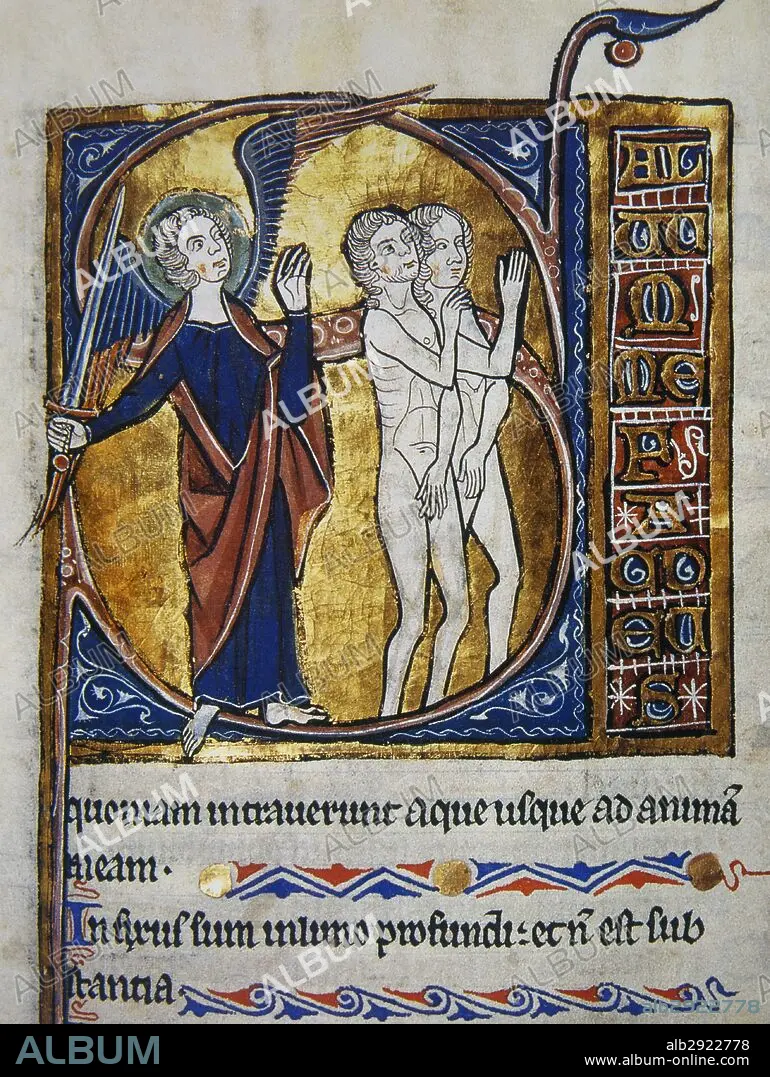 S
AL
UU
M
ME
F
A
CD
EU
S
quoniam intrauerunt aque usque ad animā
meam.
Infixus sum in limo profundi: et n̄ est sub
stantia.
ALBUM
alb2922778
www.album-online.com